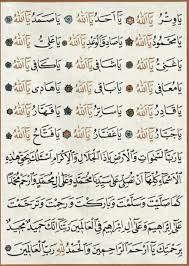 يَا وِتْرُ يَا اَللهُ يَا اَحَدُ يَا اَللهُ يَا صَمَدُ يَا اَللهُ
يَا مَحْمُودُ يَا اَللهُ يَا صَادِقَ الْوَعْدِ يَا اَللهُ يَا عَلِيُّ يَا اَللهُ
يَا غَنِيُّ يَا اَللهُ يَا شَافِي يَا اَللهُ يَا كَافِي يَا اَللهُ
يَا مُعَافِي يَا اَللهُ يَا بَاقِي يَا اَللهُ يَا هَادِي يَا اَللهُ
يَا قَادِرُ يَا اَللهُ يَا سَاتِرُ يَا اَللهُ يَا قَهَّارُ يَا اَللهُ
يَا جَبَّارُ يَا اَللهُ يَا غَفَّارُ يَا اَللهُ يَا فَتَّاحُ يَا اَللهُ
يَا رَبَّ السَّمٰوَاتِ وَالْاَرْضِ يَا ذَا الْجَلَالِ وَالْاِكْرَامِ بِحَقِّ هٰذِهِ
الْاَسْمَاءِ كُلِّهَا اَنْ تُصَلِّيَ عَلٰى سَيِّدِنَا مُحَمَّدٍ وَعَلٰى اٰلِ مُحَمَّدٍ وَارْحَمْ مُحَمَّدًا
كَمَا صَلَّيْتَ وَسَلَّمْتَ وَبَارَكْتَ وَرَحِمْتَ وَتَرَحَّمْتَ
عَلٰى اِبْرَاهِيمَ وَعَلٰى اٰلِ اِبْرَاهِيمَ فِي الْعَالَمِينَ رَبَّنَا اِنَّكَ حَمِيدٌ مَجِيدٌ
بِرَحْمَتِكَ يَا اَرْحَمَ الرَّاحِمِينَ وَالْحَمْدُ لِلّٰهِ رَبِّ الْعَالَمِينَ